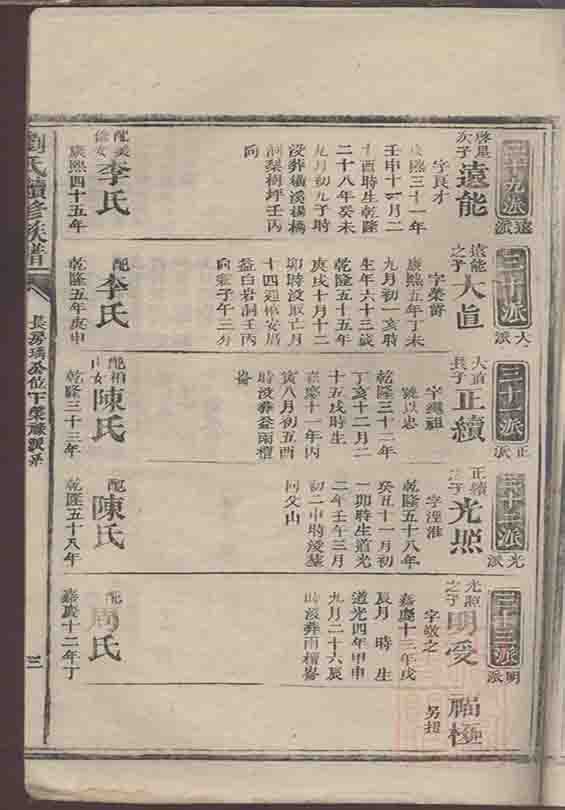 劉氏續修族譜
二十九派
遠派
啓星
次子
遠能
字良才
康熙三十一年
壬申十一月二
十酉時生乾隆
二十八年癸未
九月初九子時
沒葬橫溪楊橋
洞梨樹坪壬丙
向
李氏
康熙四十五年
三十派
大派
遠能
之子
大直
九月初一亥時
生年六十三歲
乾隆五十五年
庚戌十月十二
卯時沒
益白岩洞壬丙
向
配
李氏
乾隆五年庚申
三十一派
正派
長子
正續
字繩祖
號以忠
乾隆三十二年
丁亥十二月二
十五戌時生
嘉慶十一年丙
寅八月初五酉
時沒葬益雨檀
崙
陳氏
乾隆三十三年
三十二派
光派
正續
之子
光照
乾隆五十八年
癸丑十一月初
一卯時生道光
二年壬午三月
初二申時沒葬
同父山
配
陳氏
乾隆五十八年
三十三派
明派
光照
之子
明受
字敬之
嘉慶十三年戊
辰月時生
道光四年甲申
九月二十六辰
時沒葬雨檀崙
配
周氏
嘉慶十二年丁
福極
另排
三